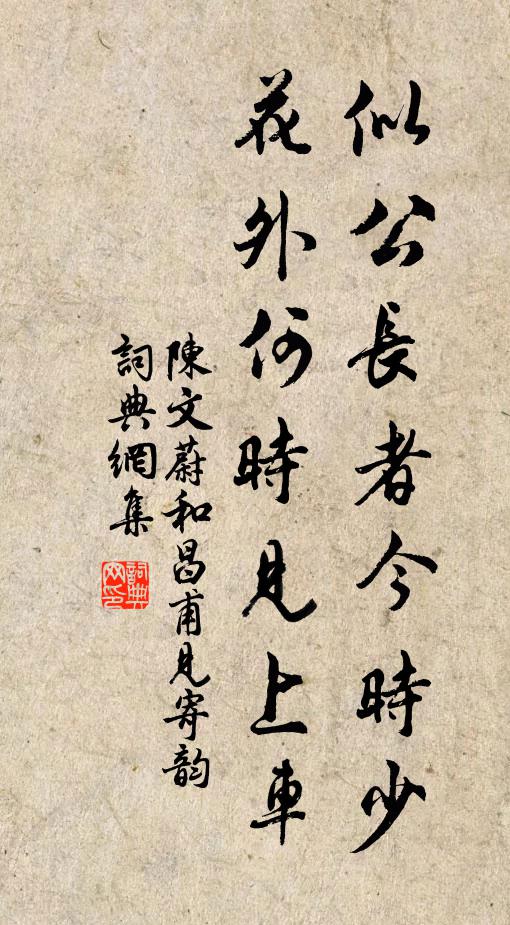 似公長者今時少
花外何時見上車
陳文蔚和昌甫見寄韵
詞典網集
詞典网印